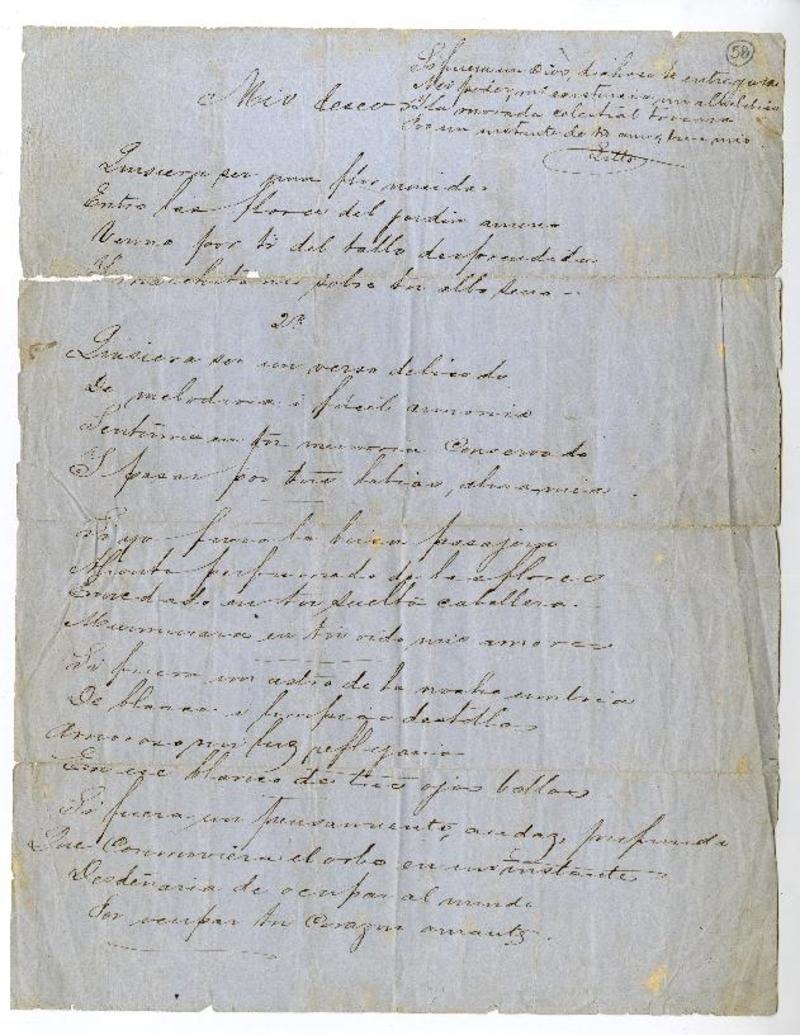 58
Mis deseos
Quisiera ser una flor nacida
Entre las flores del jardin ameno
Verme por ti del tallo desprendida
Y marchitarme sobre tu albo seno
2ª
Quisiera ser un verso delicado
De melodiosa i fácil armonia
Sentirme en tu memoria Conservado
I pasar por tus labios, alma mia
Si yo fuera la brisa pasajera
Aliento perfumado de las flores
Enredado en tu suelta cabellera
Murmurara en tu oido mis amores
Si fuera un astro de la noche umbria
De blancos i limpios destellos
Amoroso mi luz reflejaria
En ese blanco de tus ojos bellos
Si fuera un pensamiento, audaz, profundo
Que Conmoviera el orbe en un instante
Desdeñaria de ocupar al mundo
Por ocupar tu Corazon amante
Si fuera un Dios, dichoso te entregara
Mi poder, mi existencia, mi albedrio
I la morada celestial trocara
Por un instante de tu amor, bien mio